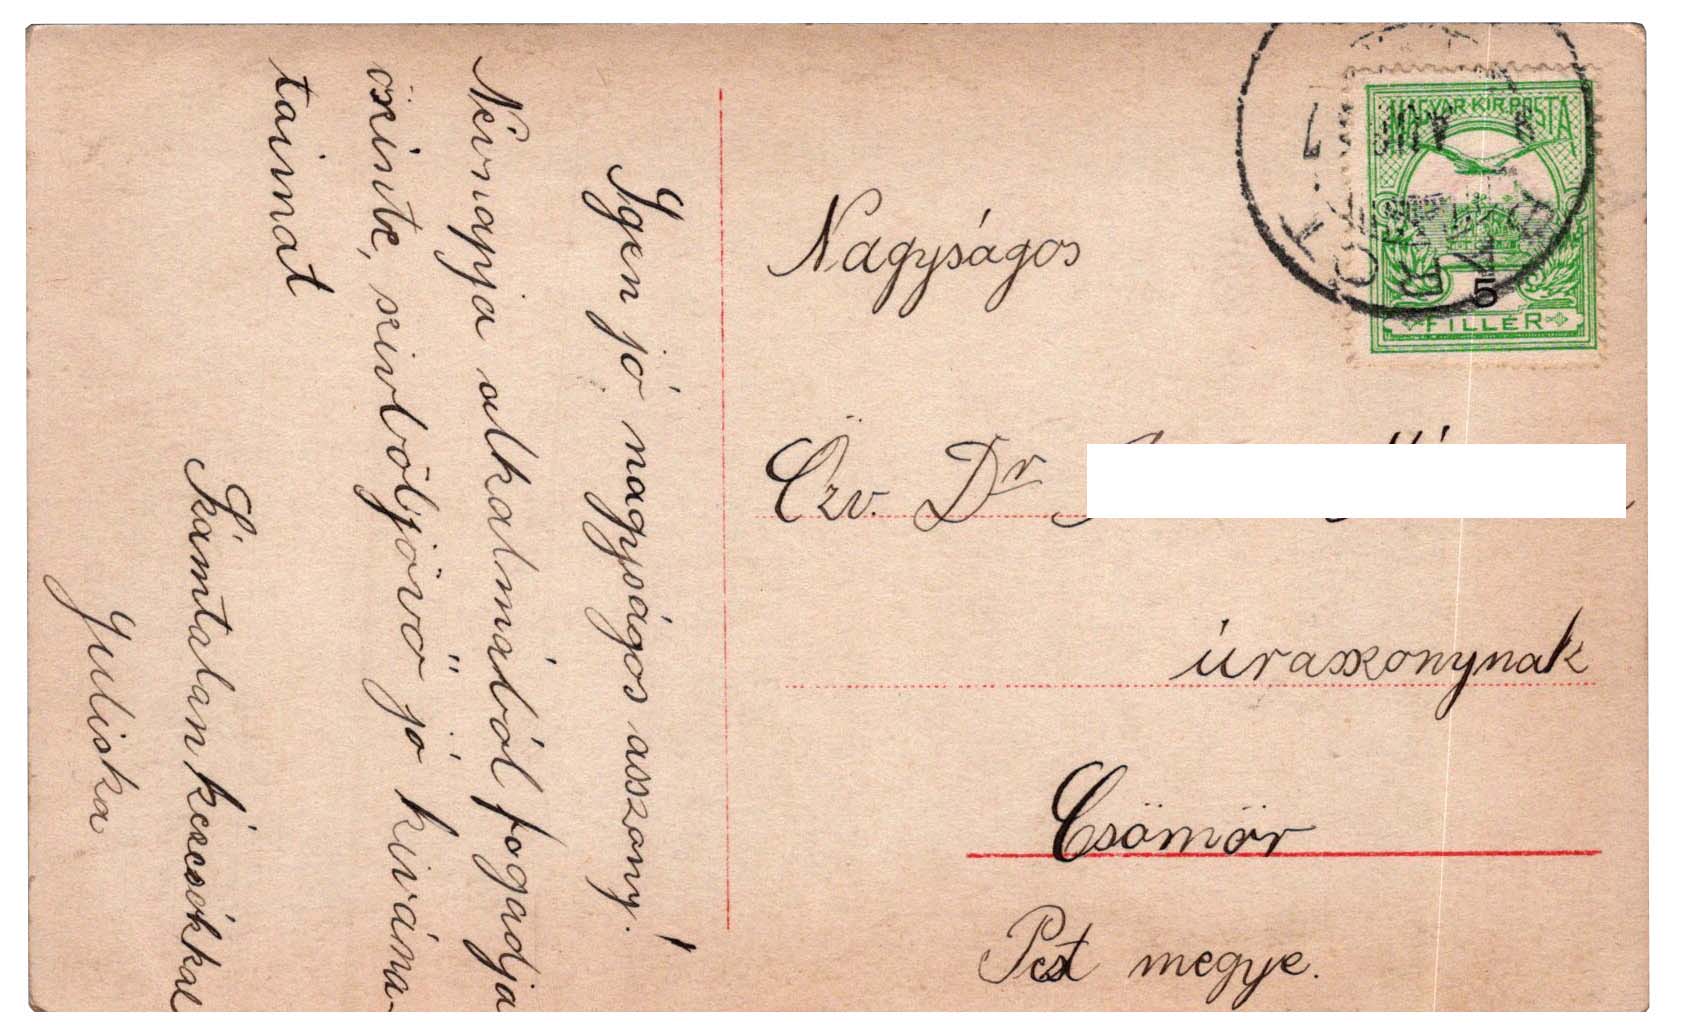 Igen jó nagyságos asszony!
Névnapja alkalmából fogadja
őszinte, szívből jövő jó kivána-
taimat
Számtalan kézcsókkal
Juliska
Nagyságos
Özv. Dr
úrasszonynak
Csömör
Pest megye.
MAGYAR KIR. POSTA
5
FILLÉR